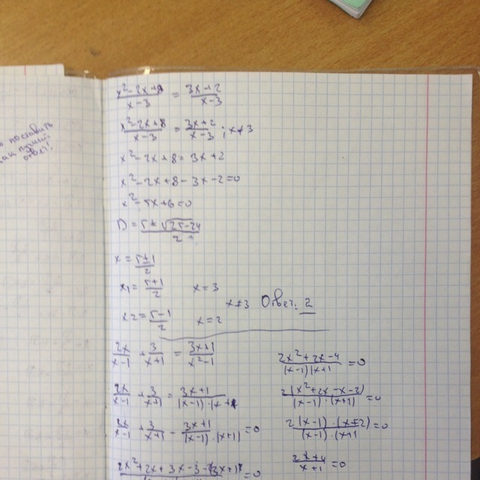 x²-2x+8/x-3 = 3x+2/x-3
x²-2x+8/x-3 = 3x+2/x-3 ; x≠3
x²-2x+8=3x+2
x²-2x+8-3x-2=0
x²-5x+6=0
D=5±√25-24/2
x=5±1/2
x1=5+1/2 x=3
x≠3 Ответ: 2
x2=5-1/2 x=2
2x/x-1 + 3/x+1 = 3x+1/x²-1
2x/x-1 + 3/x+1 = 3x+1/(x-1)·(x+1
2x/x-1 + 3/x+1 - 3x+1/(x-1)·(x+1) =0
2x²+2x+3x-3-(3x+1)/ =0
2x²+2x-4/(x-1)(x+1 =0
2(x²+2x-x-2)/(x-1)·(x+1) =0
2(x-1)·(x+2)/(x-1)·(x+1 =0
2x+4/x+1 =0
ответ!